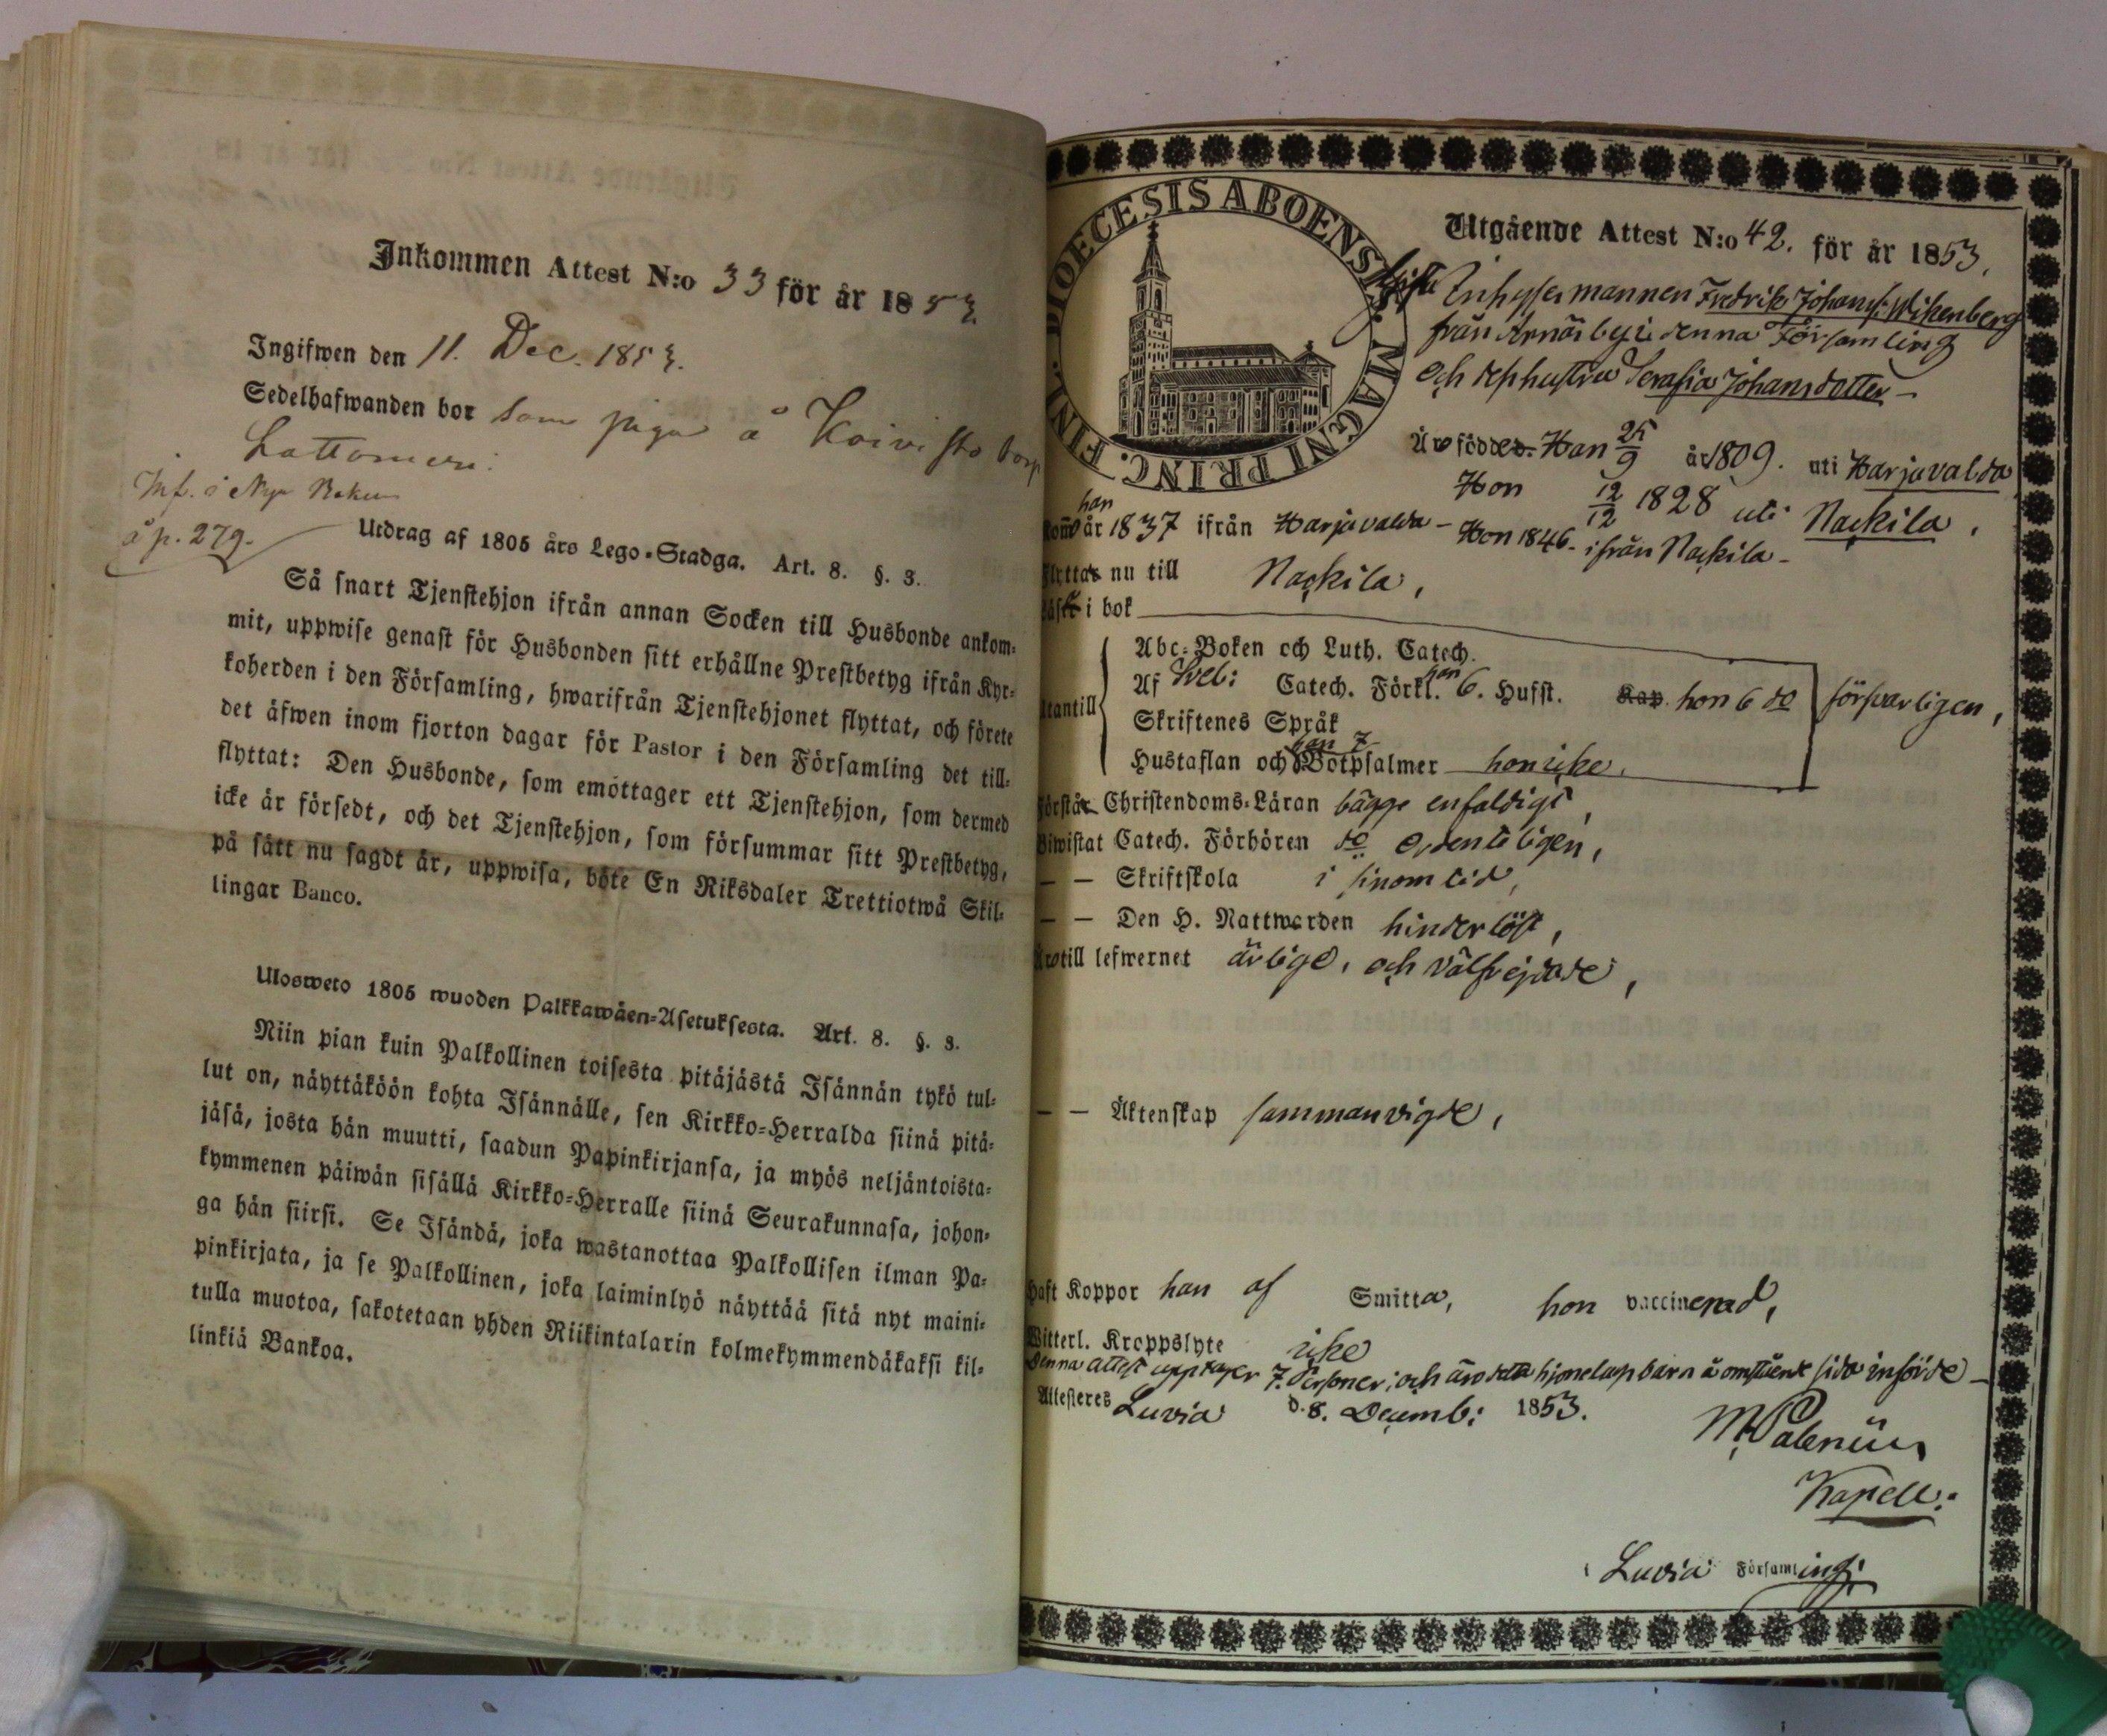 Inkommen Attest N:o 33 för år 1853
Ingifwen den 11. Dec. 1853.
Sedelhafwanden bor som piga å Koivisto torp
Lattomeri.
Inf. i Nya Boken
å p. 279.
Utdrag af 1805 års Lego-Stadga. Art. 8. §. 3.
Så snart Tjenstehjon ifrån annan Socken till Husbonde ankom-
mit, uppwise genast för Husbonden sitt erhållne Prestbetyg ifrån Kyr-
koherden i den Församling, hwarifrån Tjenstehjonet flyttat, och förete
det äfwen inom fjorton dagar för Pastor i den Församling det till-
flyttat: Den Husbonde, som emottager ett Tjenstehjon, som dermed
icke är försedt, och det Tjenstehjon, som försummar sitt Prestbetyg,
på sätt nu sagdt är, uppwisa, böte En Riksdaler Trettiotwå Skil-
lingar Banco.
Ulosweto 1805 wuoden Palkkawäen-Asetuksesta. Art. 8. §. 3.
Niin pian kuin Palkollinen toisesta pitäjästä Isännän tykö tul-
lut on, näyttäköön kohta Isännälle, sen Kirkko-Herralda siinä pitä-
jäsä, josta hän muutti, saadun Papinkirjansa, ja myös neljäntoista-
kymmenen päiwän sisällä Kirkko-Herralle siinä Seurakunnasa, johon-
ga hän siirsi. Se Isändä, joka wastanottaa Palkollisen ilman Pa-
pinkirjata, ja se Palkollinen, joka laiminlyö näyttää sitä nyt maini-
tulla muotoa, sakotetaan yhden Riikintalarin kolmekymmendäkaksi kil-
linkiä Bankoa.
DIOECESIS ABOENSIS. MAGNI PRINC. FINL.
Utgående Attest N:o 42. för år 1853.
Inhysesmannen Fredrik Johanss: Wikenberg
från Arnäs by i denna Församling
och dess hustru Serafia Johansdotter –
Äro födde. Han 25/9 år 1809. uti Harjavalda
Hon 12/12 1828 uti Nackila.
han
Kom år 1837 ifrån Harjavalda – Hon 1846 – ifrån Nackila –
Flyttar nu till Nackila,
Läser i bok
Abc-Boken och Luth. Catech.
Af Sveb: Catech. Förkl. han 6. Hufst. Kap. hon 6 do försvarligen,
Utantill
Skriftenes Språk
Hustaflan och han 7 Botpsalmer hon icke.
Förstår Christendoms-Läran bägge enfaldigt,
Biwistat Catech. Förhören do ordenteligen,
– – Skriftskola i sinom tid,
– – Den H. Nattwarden hinderlöst,
Äro till lefwernet ärlige, och välfrejdade,
– – Äktenskap sammanvigde,
Haft Koppor han af Smitta, hon vaccinerad,
Witterl. Kroppslyte icke
Denna attest upptager 7. Personer; och äro detta hjonelags barn å omstående sida införde –
Attesteres Luvia d. 8. Decemb: 1853.
M. Palenius
Kapell:
Luvia Församling: